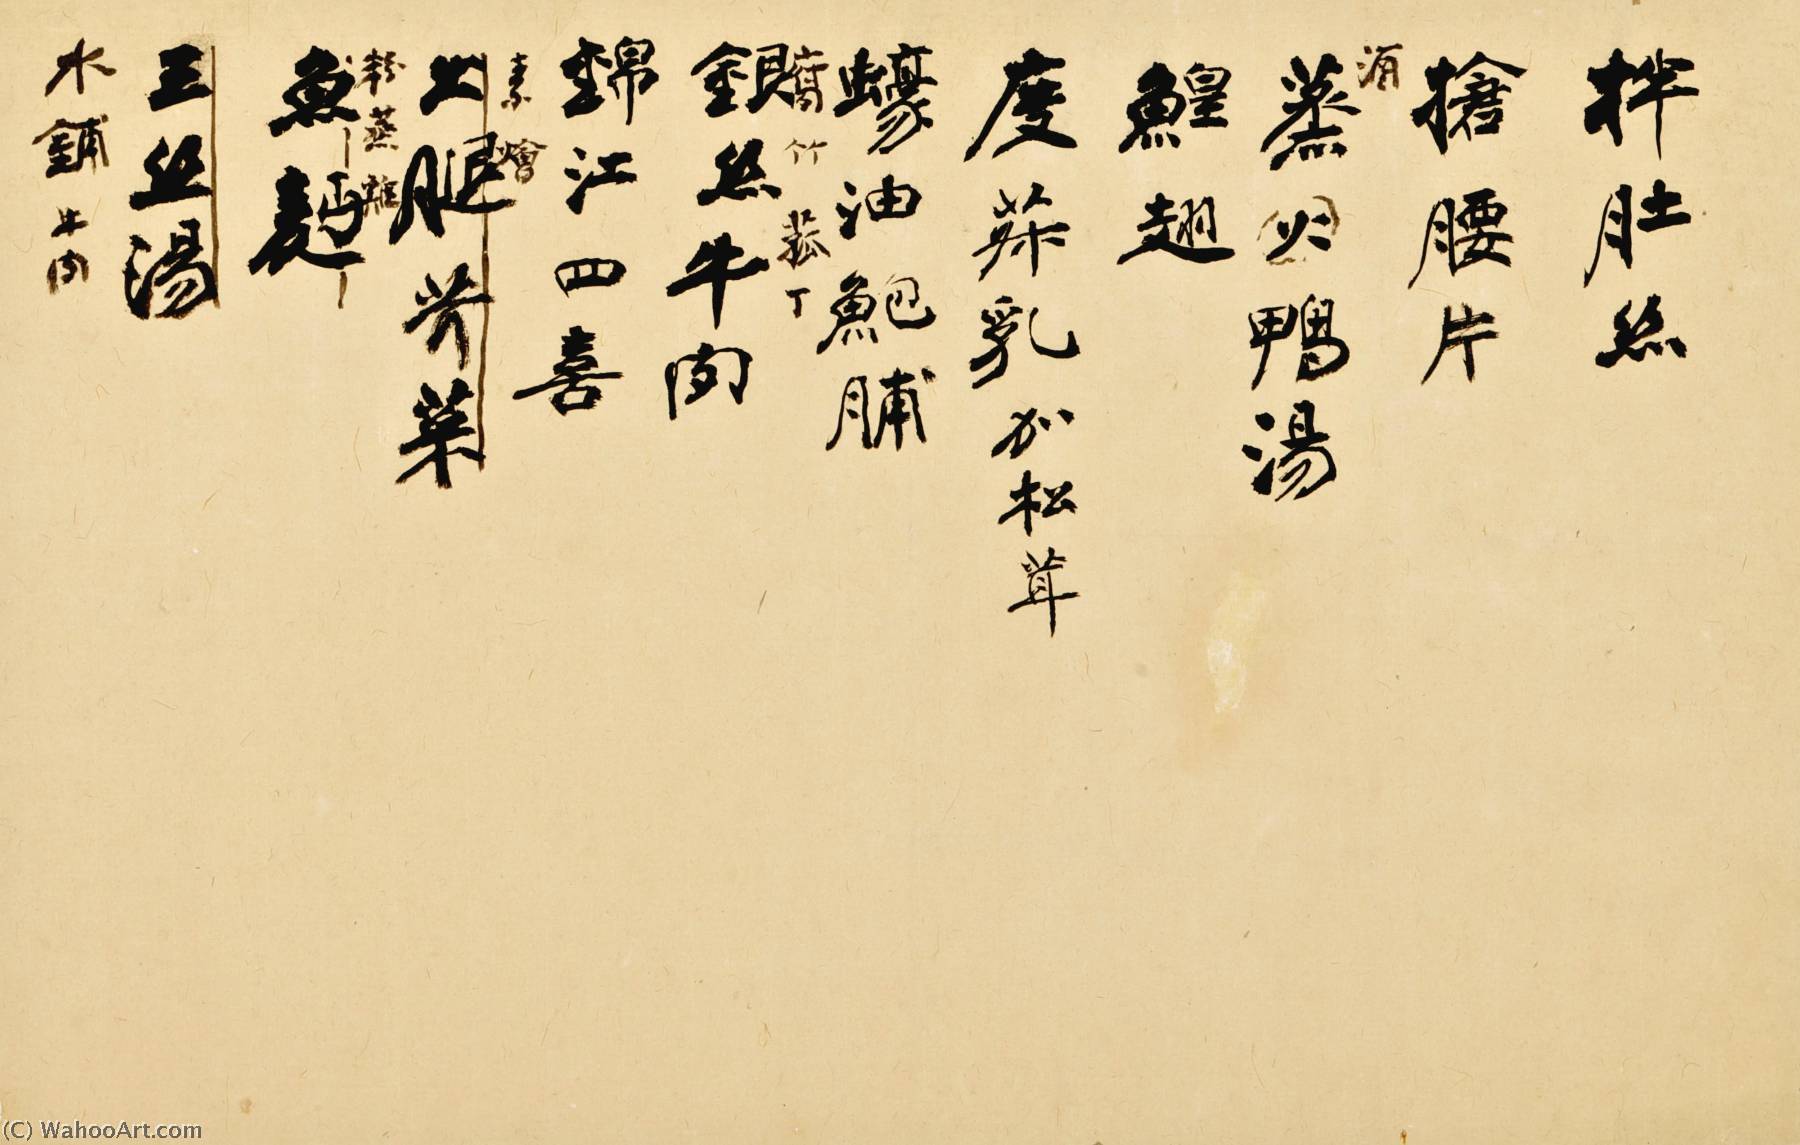 拌肚絲
搶腰片
酒
蒸火鴨湯
鰉翅
度乳加松茸
蠔油鮑脯
腐竹菘丁
銀絲牛肉
錦江四喜
素燴
火腿芥菜
粉蒸雞
魚麵
三絲湯
水鋪牛肉
(C) WahooArt.com